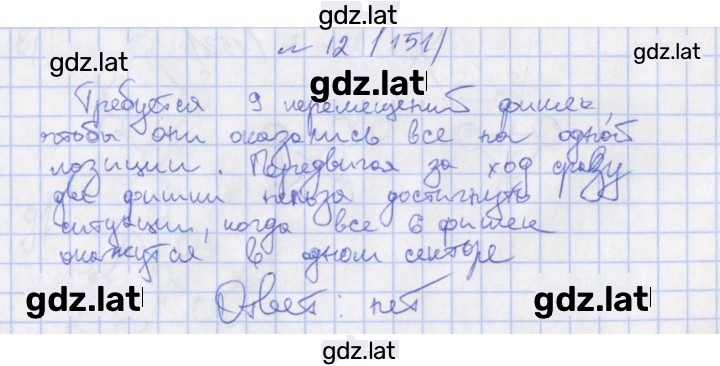 gdz.lat
№ 12 (151)
gdz.lat
gdz.lat
Требуется 9 перемещений фишек,
чтобы они оказались все на одной
позиции. Передвигая за ход сразу
две фишки нельзя достигнуть
ситуации, когда все 6 фишек
окажутся в одном секторе
gdz.lat
Ответ: нет
gdz.lat
gdz.lat